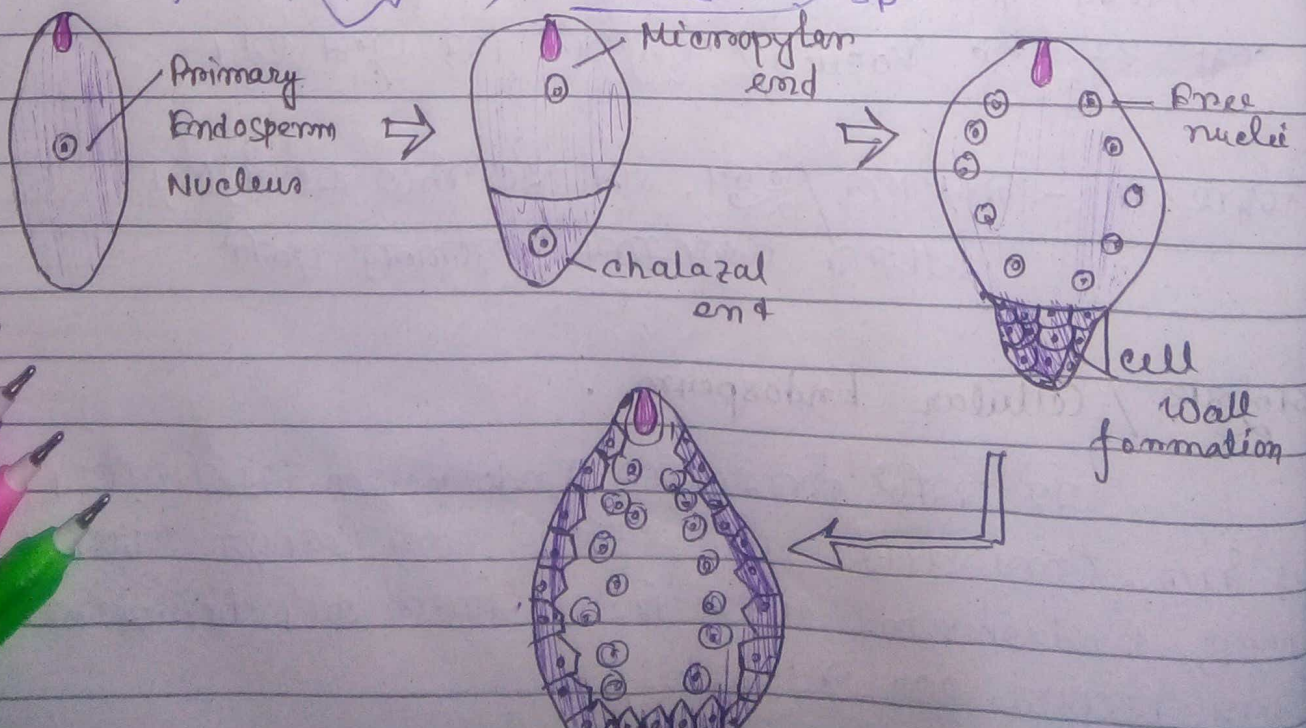 Primary
Endosperm
Nucleus
Micropylar
end
chalazal
end
Free
nuclei
Cell
wall
formation